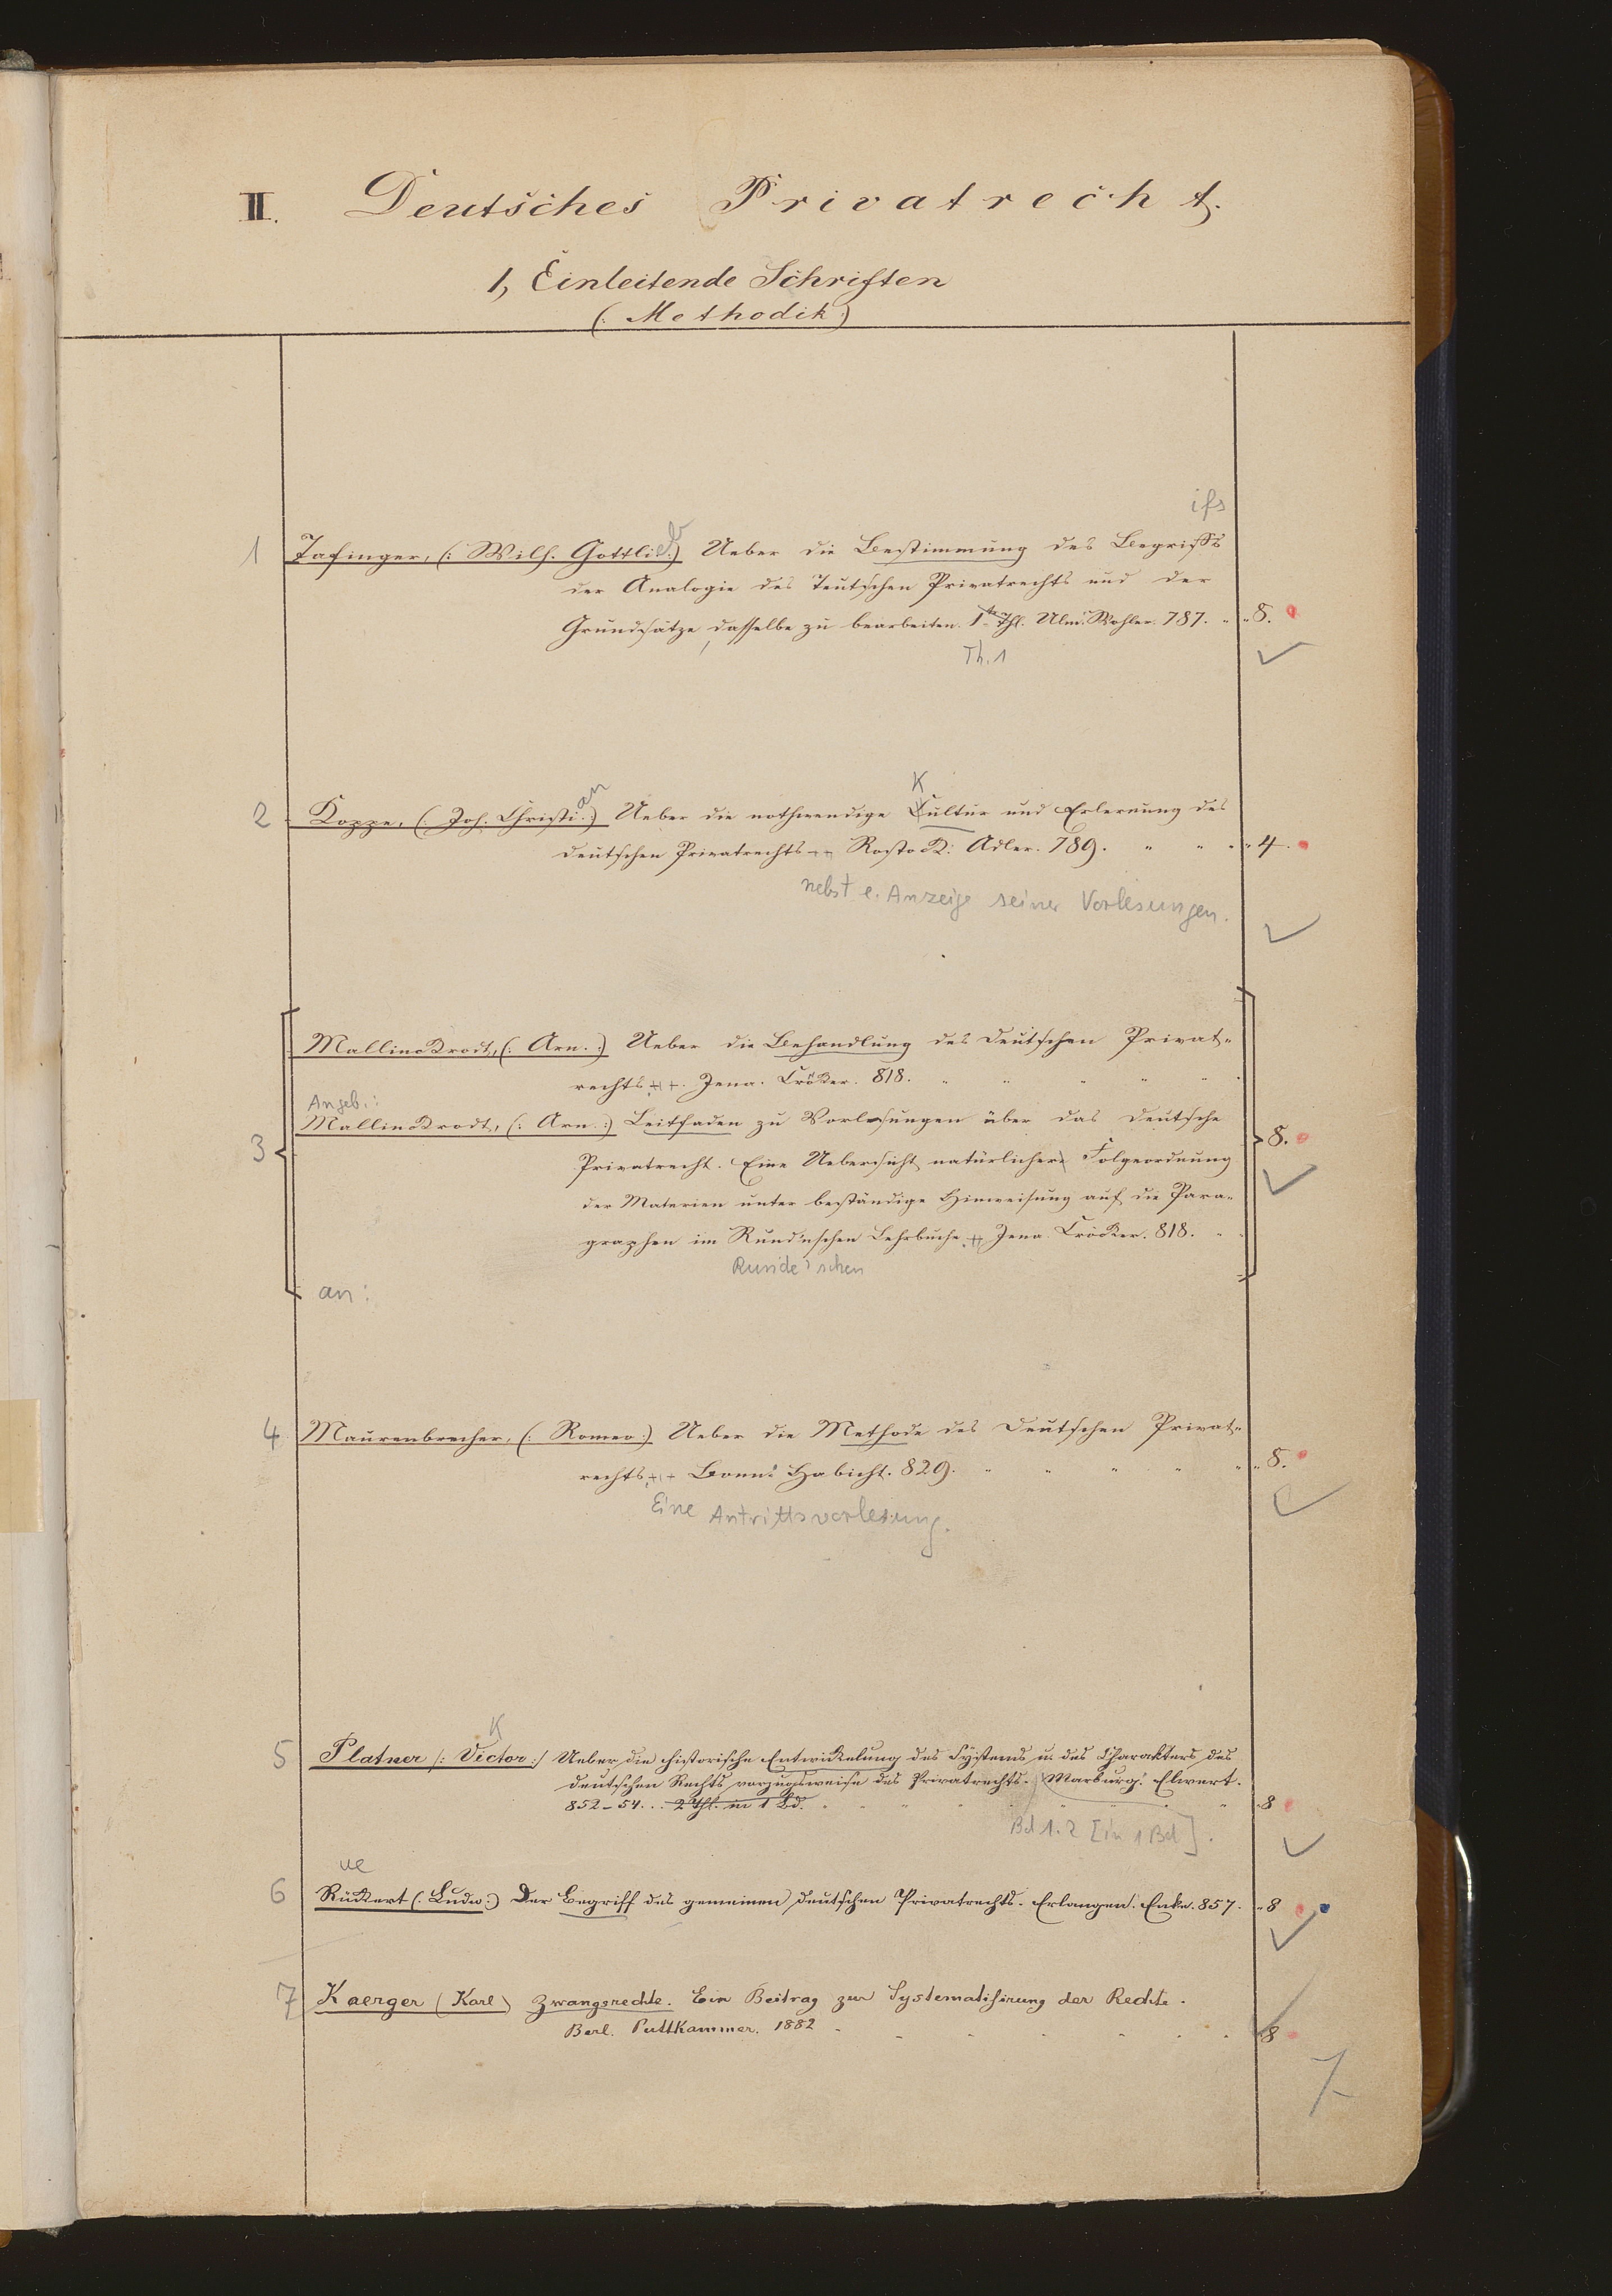 II. Deutsches Privatrecht.
1, Einleitende Schriften
(: Methodik :)
ifs
1 Tafinger, (: Wilh. Gottlieb :) Ueber die Bestimmung des Begriffs
der Analogie des Teutschen Privatrechts und der
Grundsätze, dasselbe zu bearbeiten. 1ter Thl. Ulm. Wohler. 787. " " 8.
Th. 1
K
2 Koppe, (: Joh. Christian :) Ueber die nothwendige Cultur und Erlernung des
deutschen Privatrechts ++ Rostock: Adler. 789. " " " " 4.
nebst e. Anzeige seiner Vorlesungen.
Mallinckrodt, (: Arn. :) Ueber die Behandlung des deutschen Privat-
rechts ++. Jena. Cröker. 818. " " " " "
Angeb.:
3 Mallinckrodt, (: Arn. :) Leitfaden zu Vorlesungen über das deutsche 8.
Privatrecht. Eine Uebersicht natürlicher Folgeordnung
der Materien unter beständige Hinweisung auf die Para-
graphen im Rund'nschen Lehrbuche. ++ Jena Cröcker. 818. "
Runde'schen
an:
4 Maurenbrecher, (: Romeo :) Ueber die Methode des deutschen Privat-
rechts, ++ Bonn: Habicht. 829. " " " " " " 8.
Eine Antrittsvorlesung.
K
5 Platner (: Victor :) Ueber die historische Entwickelung des Systems u. des Charakters des
deutschen Rechts vorzugsweise des Privatrechts. Marburg: Elwert.
852-54. . . 2 Thl. in 1 Bd. " " " " " " 8
Bd 1. 2 [in 1 Bd].
ue
6 Rückert (: Ludw. :) Der Begriff des gemeinen deutschen Privatrechts. Erlangen. Enke. 857. " 8
7 Kaerger (Karl) Zwangsrechte. Ein Beitrag zur Systematisirung der Rechte.
Berl. Puttkammer. 1882 8
7